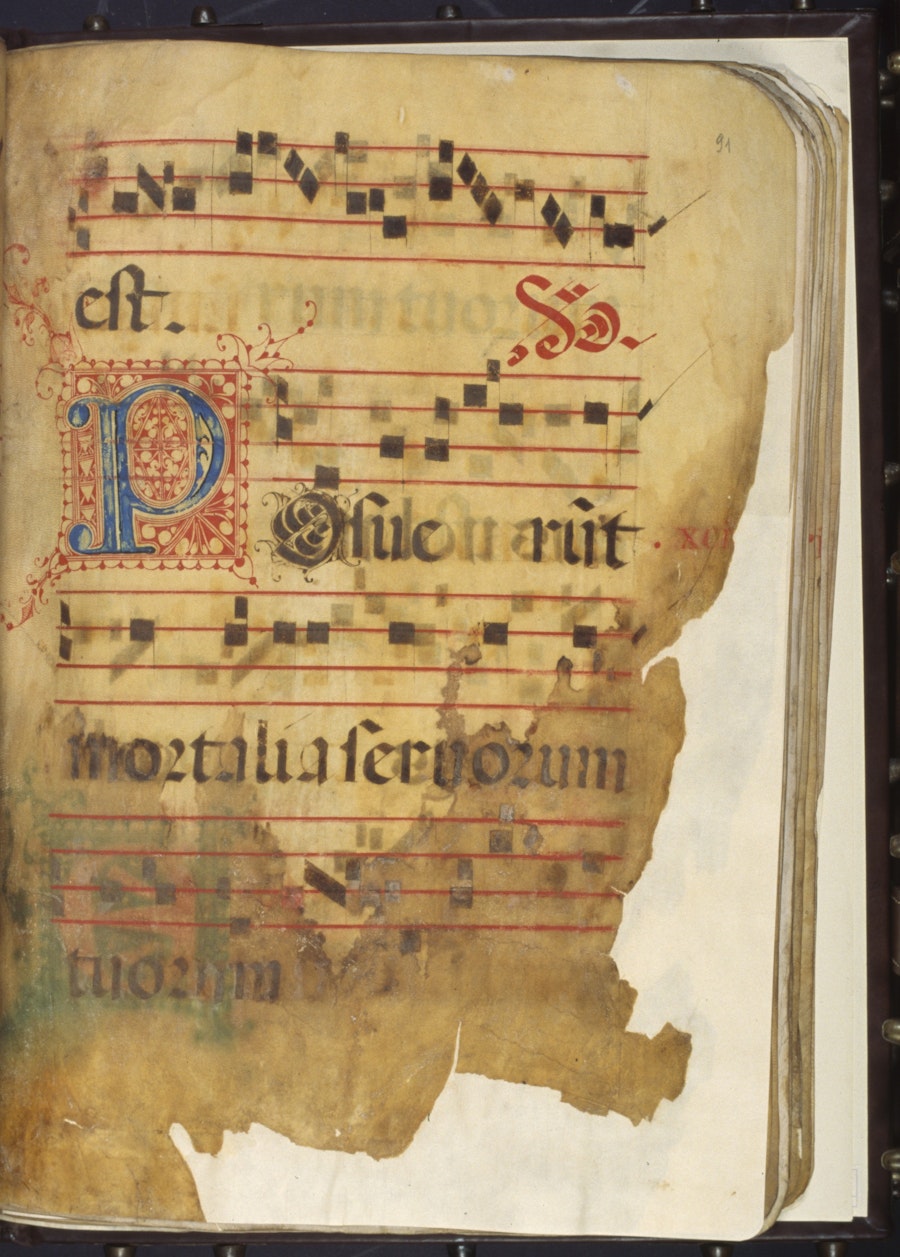 91
est.
P Osue rūt
mortalia seruorum
tuorum